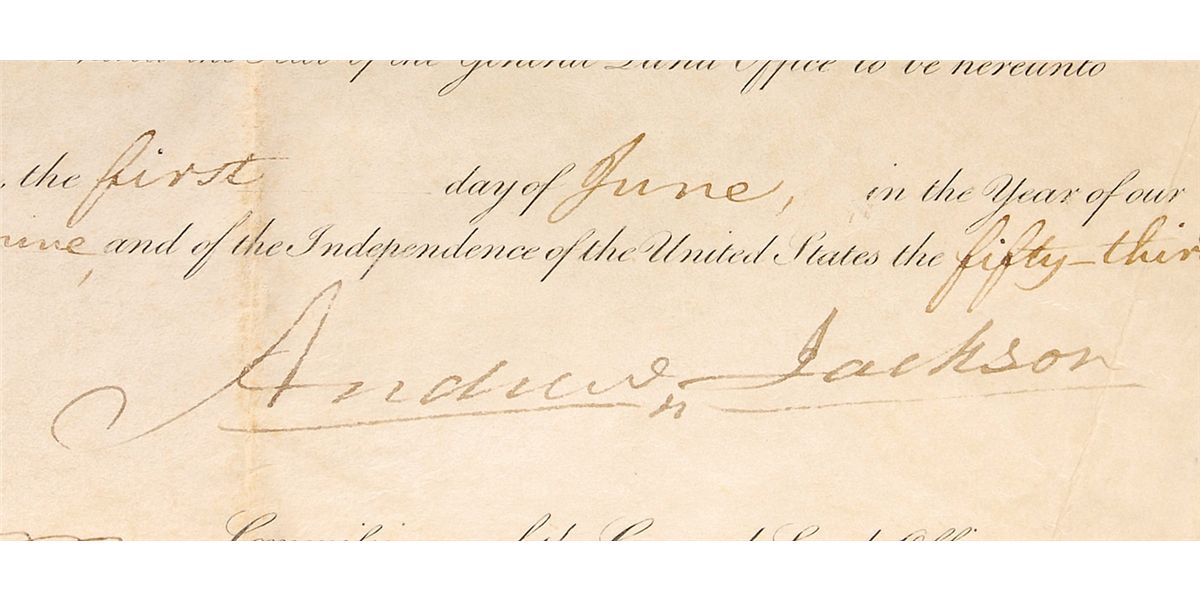 the Seal of the General Land Office to be hereunto
, the first day of June, in the Year of our
nine, and of the Independence of the United States the fifty-third
Andrew Jackson
Commissioner of the General Land Office